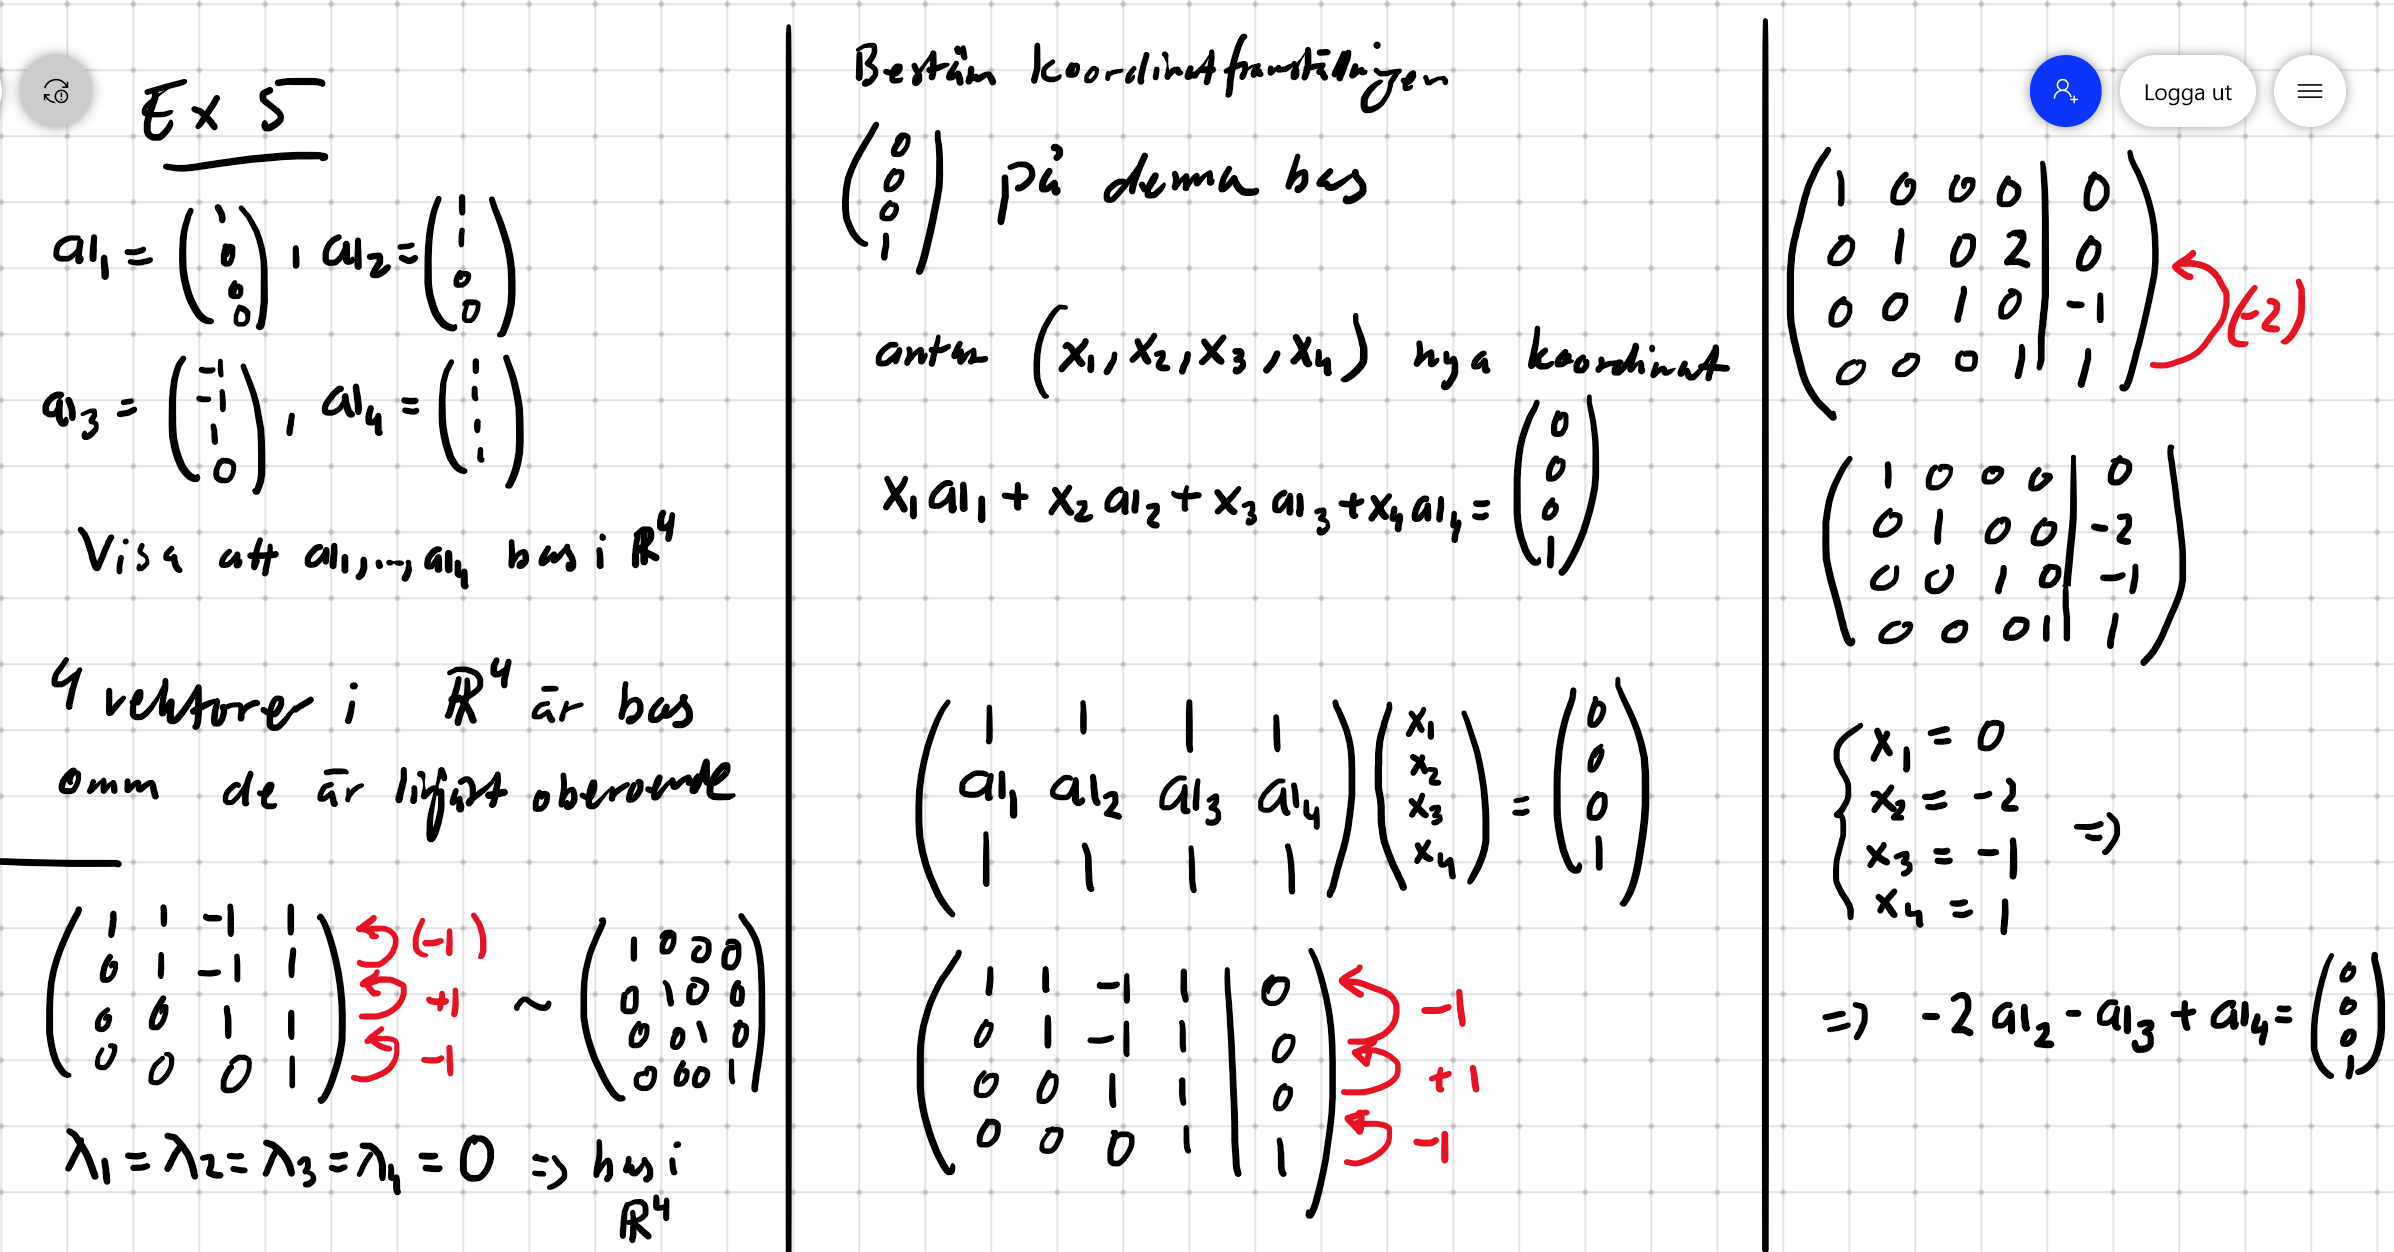 Ex 5
a₁ = (1 0 0 0), a₂ = (1 1 0 0)
a₃ = (-1 -1 1 0), a₄ = (1 1 1 1)
Visa att a₁,..,a₄ bas i ℝ⁴
4 vektorer i ℝ⁴ är bas
omm de är linjärt oberoende
1 1 -1 1 (-1) 1 0 0 0
0 1 -1 1 +1 ~ 0 1 0 0
0 0 1 1 -1 0 0 1 0
0 0 0 1 0 0 0 1
λ₁ = λ₂ = λ₃ = λ₄ = 0 => bas i
ℝ⁴
Bestäm koordinatframställningen
(0 0 0 1) på denna bas
antar (x₁, x₂, x₃, x₄) nya koordinat
x₁a₁ + x₂a₂ + x₃a₃ + x₄a₄ = (0 0 0 1)
(a₁ a₂ a₃ a₄) (x₁ x₂ x₃ x₄) = (0 0 0 1)
1 1 -1 1 | 0 -1
0 1 -1 1 | 0 +1
0 0 1 1 | 0 -1
0 0 0 1 | 1
Logga ut
1 0 0 0 | 0
0 1 0 2 | 0
0 0 1 0 | -1 (-2)
0 0 0 1 | 1
1 0 0 0 | 0
0 1 0 0 | -2
0 0 1 0 | -1
0 0 0 1 | 1
x₁ = 0
x₂ = -2 =>
x₃ = -1
x₄ = 1
=> -2a₂ - a₃ + a₄ = (0 0 0 1)